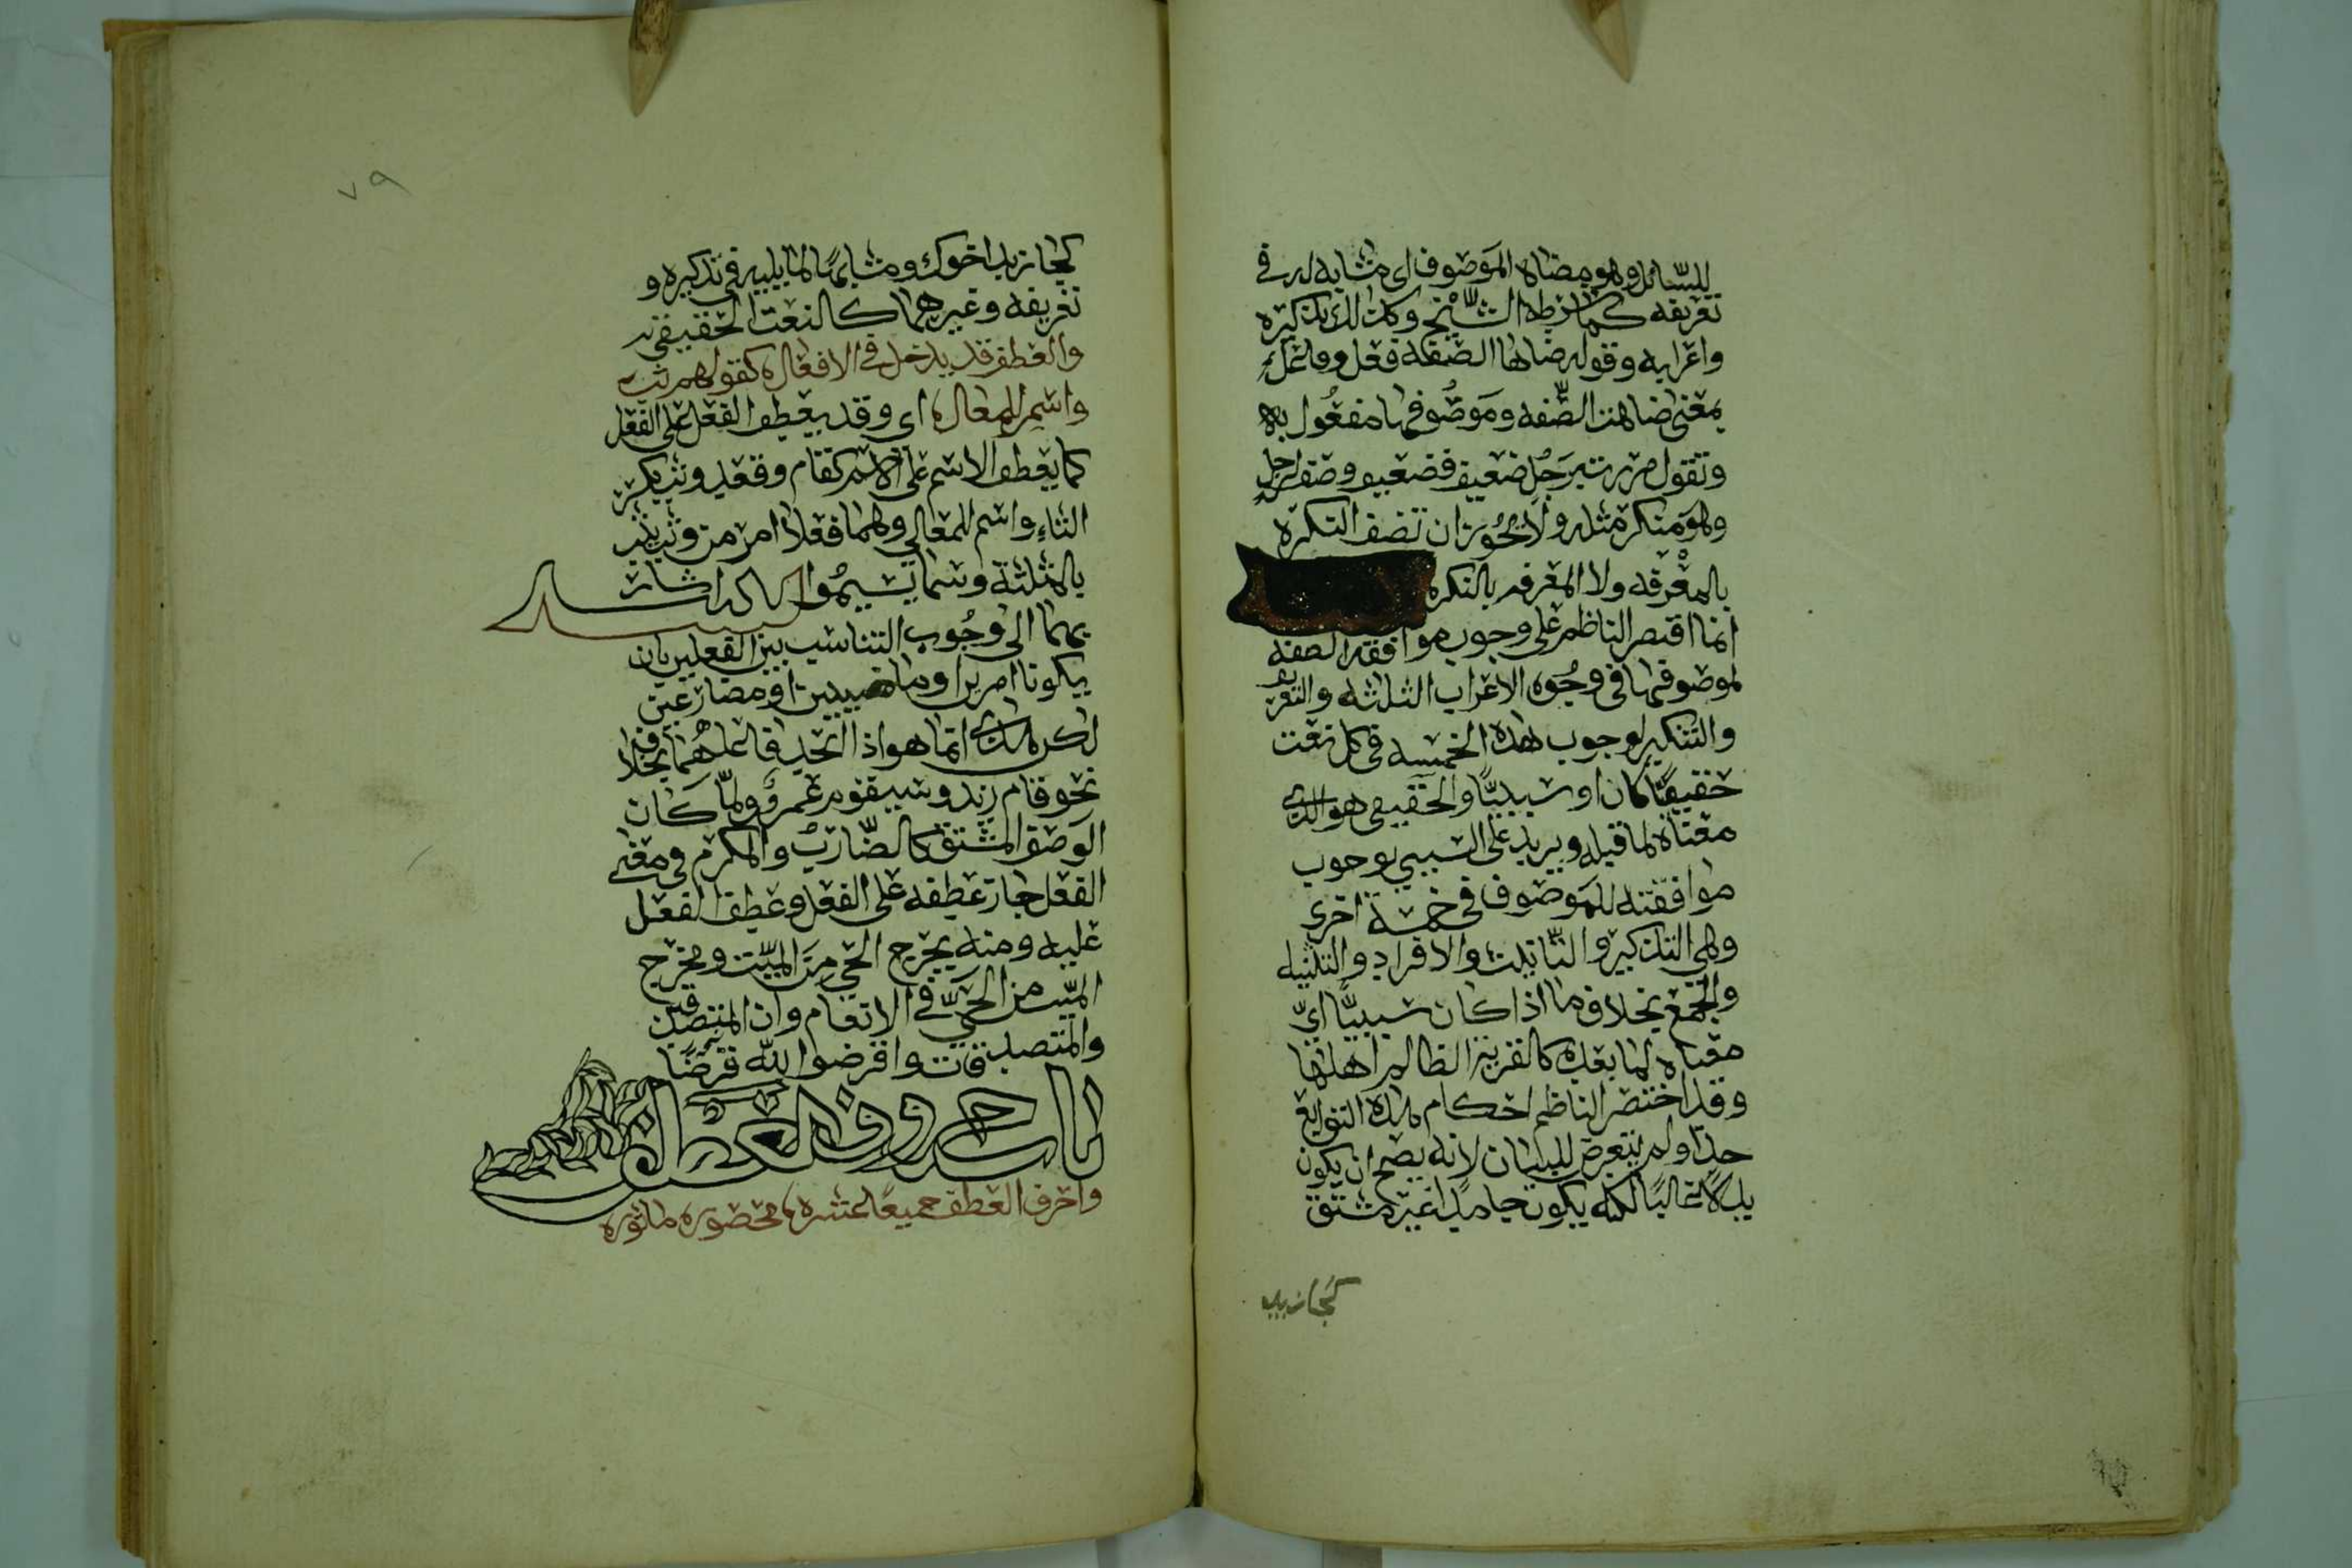 للسائل وهو مضاه الموصوف اي مشابه له في
تعريفه كما شرطه الشيخ وكذلك تذكيره
واعرابه وقوله ضاها الصفه فعل وفاعل
بمعنى ضاهت الصّفه وموصوفها مفعول به
وتقول مررت برجل ضعيف فضعيف وصف لرجل
وهو منكر مثله ولا يجوز ان تصف النكره
بالمعرفه ولا المعرفه بالنكره
انما اقتصر الناظم على وجوب موافقة الصفه
لموصوفها في وجوه الاعراب الثلثه والتعريف
والتنكير لوجوب هذه الخمسه في كل نعت
حقيقيّا كان او سببيّا والحقيقي هو الذي
معناه لما قبله ويزيد على السببي بوجوب
موافقته للموصوف في خمسة اخرى
وهي التذكير والتانيث والافراد والتثنيه
والجمع بخلاف ما اذا كان سببيّا ايّ
معناه لما بعده كالقرية الظالم اهلها
وقد اختصر الناظم احكام هذه التوابع
جدّا ولم يتعرض للبيان لانه يصح ان يكون
بدلا غالبًا لكنه يكون جامدا غير مشتق
كجا زيد
٧٩
كجا زيد اخوك ومشابهًا لما يليه في تذكيره و
تعريفه وغيرهما كالنعت الحقيقي
والعطف قد يدخل في الافعال كقولهم ثب
واسم للمعال اي وقد يعطف الفعل على الفعل
كما يعطف الاسم على الاسم كقام وقعد وثب بكسر
الثاء واسم للمعالي وهما فعلا امر من وثب يثب
بالمثلثة وسما يسموا اشار
بهما الى وجوب التناسب بين الفعلين بان
يكونا امرين او ماضيين او مضارعين
لكن هذا انما هو اذا اتحد فاعلهما بخلاف
نحو قام زيد وسيقوم عمرو ولمّا كان
الوصف المشتق كالضّارب والمكرم في معنى
الفعل جاز عطفه على الفعل وعطف الفعل
عليه ومنه يخرج الحي من الميّت ومخرج
الميّت من الحيّ في الانعام وان المتصدقين
والمتصدقات واقرضوا الله قرضًا
باب حروف العطف
واحرف العطف جميعًا عشره محصوره ماثوره